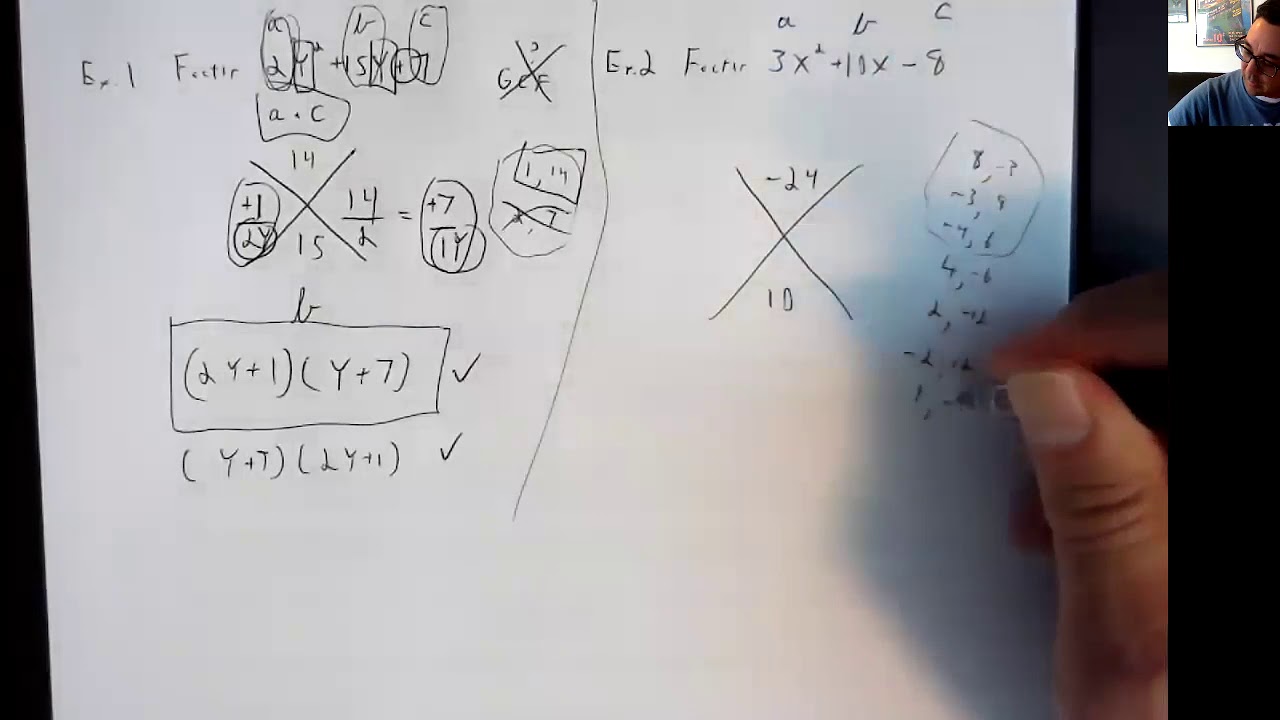 a b c
Ex. 1 Factor 2Y² + 15Y + 7
GCF?
a · c
14
+1 14 = +7
2Y 2 1Y
15
1, 14
b
(2Y+1)(Y+7) ✓
(Y+7)(2Y+1) ✓
a b c
Ex. 2 Factor 3x² + 10x - 8
-24
10
8, -3
-3, 8
-4, 6
4, -6
2, -12
-2, 12